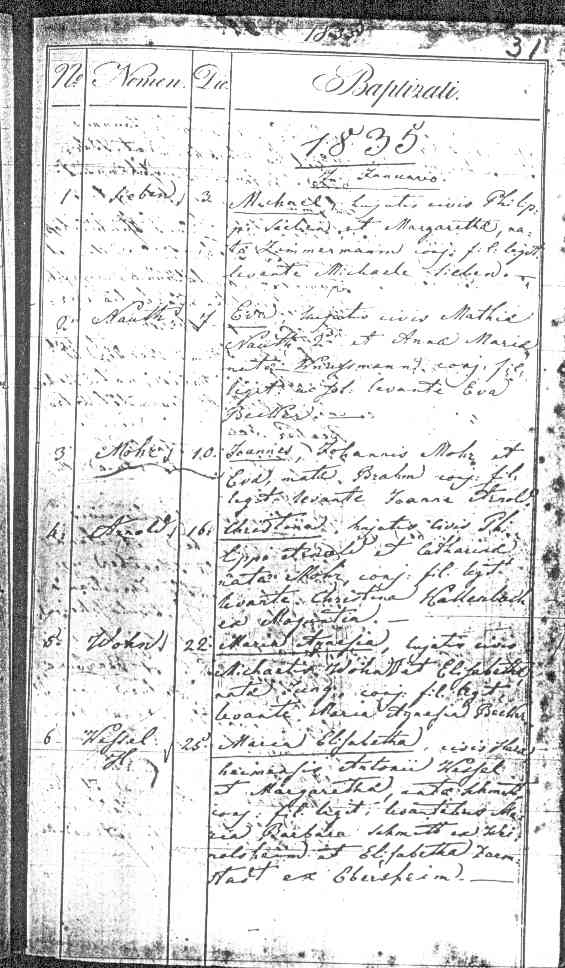 31
No Nomen. Die Baptizati.
1835
In Januario.
1. Sieben 3. Michael, hujatis civis Philip-
pi Sieben et Margaretha, na-
ta Zimmermann conj. fil. legit.
levante Michaele Sieben. —
2. Nauth 7 Eva, hujatis civis Mathia
Nauth 2di et Anna Maria
nata conj. fil.
legit. levante Eva
Becker. —
3. Mohr 10. Joannes, Johannis Mohr et
Eva, nata Brahm conj. fil.
legit. levante Joanne Arnold
4. Arnold 16. Christina, hujatis civis Phi-
lippi Arnold et Catharina
nata Mohr, conj. fil. legit.
levante Christina Hattenbach
ex Moguntia. —
5. Wohn 22. Maria Agnesia, hujatis civis
Michaelis Wohn et Elisabetha
nata Jung, conj. fil. legit.
levante Maria Agnesia Becker
6 Hessel 25. Maria Elisabetha, civis Hara-
heimensis Antonii Hessel
et Margaretha, nata Schmitt
conj. fil. legit. levantibus Ma-
ria Barbara Schmitt ex
et Elisabetha Darm-
stadt ex Ebersheim. —